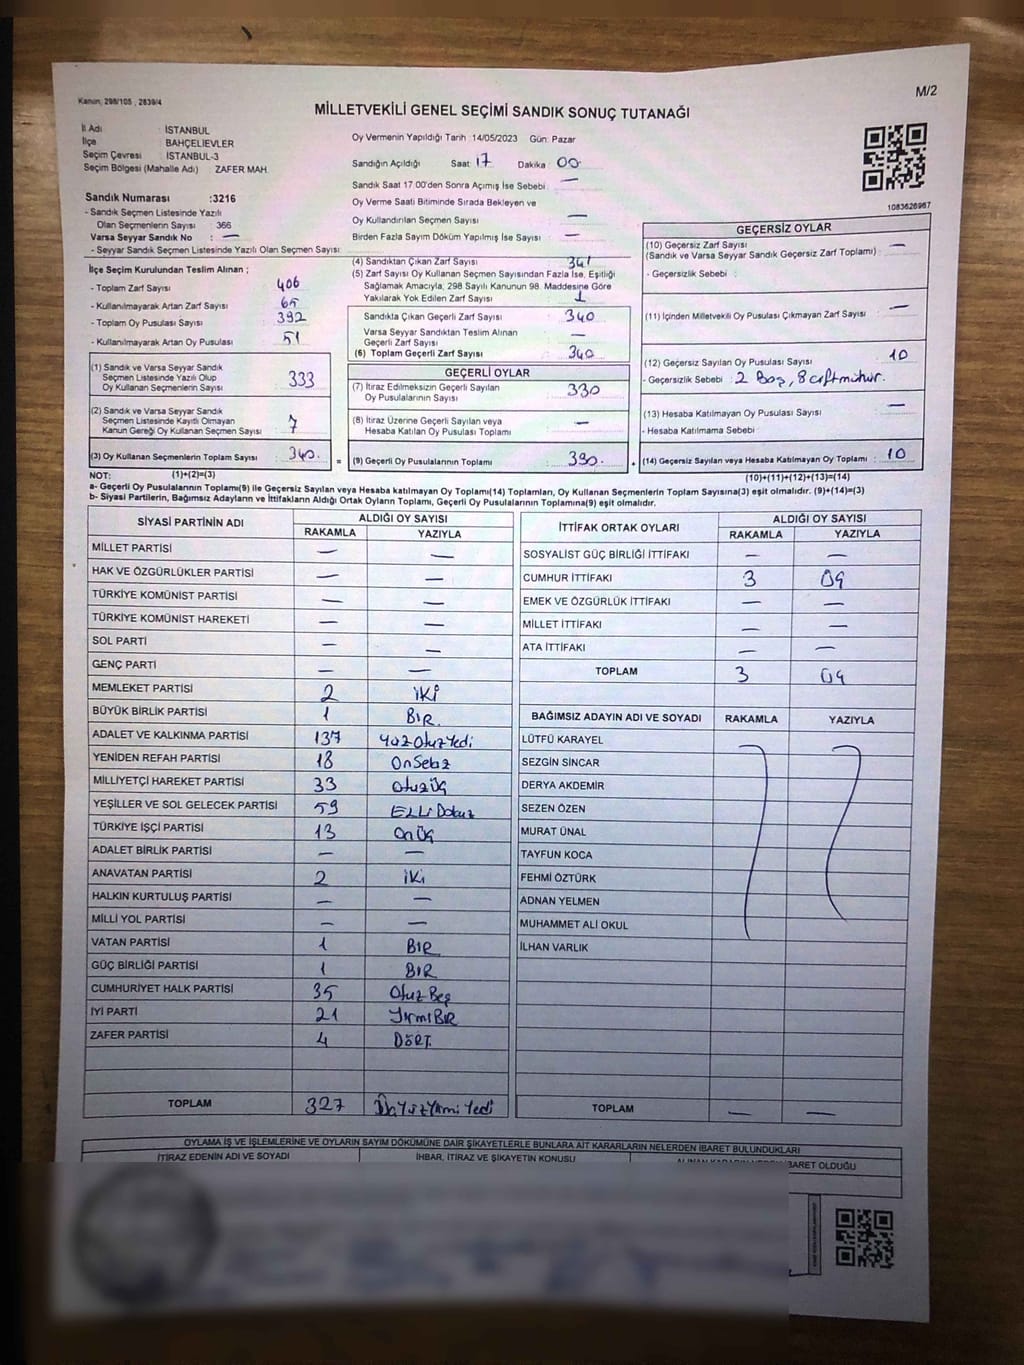 Kanun, 298/105 , 2839/4
M/2
MİLLETVEKİLİ GENEL SEÇİMİ SANDIK SONUÇ TUTANAĞI
İl Adı : İSTANBUL
İlçe : BAHÇELİEVLER
Seçim Çevresi : İSTANBUL-3
Seçim Bölgesi (Mahalle Adı) : ZAFER MAH.
Oy Vermenin Yapıldığı Tarih :14/05/2023 Gün: Pazar
Sandığın Açıldığı Saat :17 Dakika :00
Sandık Saat 17.00'den Sonra Açımış İse Sebebi : —
Oy Verme Saati Bitiminde Sırada Bekleyen ve
Oy Kullandırılan Seçmen Sayısı : —
Birden Fazla Sayım Döküm Yapılmış İse Sayısı : —
1083626967
Sandık Numarası :3216
- Sandık Seçmen Listesinde Yazılı
Olan Seçmenlerin Sayısı : 366
Varsa Seyyar Sandık No : —
- Seyyar Sandık Seçmen Listesinde Yazılı Olan Seçmen Sayısı:
İlçe Seçim Kurulundan Teslim Alınan ;
- Toplam Zarf Sayısı : 406
- Kullanılmayarak Artan Zarf Sayısı : 65
- Toplam Oy Pusulası Sayısı : 392
- Kullanılmayarak Artan Oy Pusulası : 51
(1) Sandık ve Varsa Seyyar Sandık
Seçmen Listesinde Yazılı Olup
Oy Kullanan Seçmenlerin Sayısı : 333
(2) Sandık ve Varsa Seyyar Sandık
Seçmen Listesinde Kayıtlı Olmayan
Kanun Gereği Oy Kullanan Seçmen Sayısı : 7
(3) Oy Kullanan Seçmenlerin Toplam Sayısı : 340.
(4) Sandıktan Çıkan Zarf Sayısı : 341
(5) Zarf Sayısı Oy Kullanan Seçmen Sayısından Fazla İse, Eşitliği
Sağlamak Amacıyla, 298 Sayılı Kanunun 98. Maddesine Göre
Yakılarak Yok Edilen Zarf Sayısı : 1
Sandıkta Çıkan Geçerli Zarf Sayısı : 340
Varsa Seyyar Sandıktan Teslim Alınan
Geçerli Zarf Sayısı : —
(6) Toplam Geçerli Zarf Sayısı : 340
GEÇERLİ OYLAR
(7) İtiraz Edilmeksizin Geçerli Sayılan
Oy Pusulalarının Sayısı : 330
(8) İtiraz Üzerine Geçerli Sayılan veya
Hesaba Katılan Oy Pusulası Toplamı : —
= (9) Geçerli Oy Pusulalarının Toplamı : 330.
GEÇERSİZ OYLAR
(10) Geçersiz Zarf Sayısı
(Sandık ve Varsa Seyyar Sandık Geçersiz Zarf Toplamı) : —
- Geçersizlik Sebebi :
(11) İçinden Milletvekili Oy Pusulası Çıkmayan Zarf Sayısı : —
(12) Geçersiz Sayılan Oy Pusulası Sayısı : 10
- Geçersizlik Sebebi : 2 Boş, 8 çift mühür.
(13) Hesaba Katılmayan Oy Pusulası Sayısı : —
- Hesaba Katılmama Sebebi :
+ (14) Geçersiz Sayılan veya Hesaba Katılmayan Oy Toplamı : 10
NOT: (1)+(2)=(3)
(10)+(11)+(12)+(13)=(14)
a- Geçerli Oy Pusulalarının Toplamı(9) ile Geçersiz Sayılan veya Hesaba katılmayan Oy Toplamı(14) Toplamları, Oy Kullanan Seçmenlerin Toplam Sayısına(3) eşit olmalıdır. (9)+(14)=(3)
b- Siyasi Partilerin, Bağımsız Adayların ve İttifakların Aldığı Ortak Oyların Toplamı, Geçerli Oy Pusulalarının Toplamına(9) eşit olmalıdır.
SİYASİ PARTİNİN ADI ALDIĞI OY SAYISI
RAKAMLA YAZIYLA
MİLLET PARTİSİ — —
HAK VE ÖZGÜRLÜKLER PARTİSİ — —
TÜRKİYE KOMÜNİST PARTİSİ — —
TÜRKİYE KOMÜNİST HAREKETİ — —
SOL PARTİ — —
GENÇ PARTİ — —
MEMLEKET PARTİSİ 2 İKİ
BÜYÜK BİRLİK PARTİSİ 1 BIR.
ADALET VE KALKINMA PARTİSİ 137 YüzOtuzYedi
YENİDEN REFAH PARTİSİ 18 OnSekiz
MİLLİYETÇİ HAREKET PARTİSİ 33 Otuzüç
YEŞİLLER VE SOL GELECEK PARTİSİ 59 ELLiDokuz
TÜRKİYE İŞÇİ PARTİSİ 13 Onüç
ADALET BİRLİK PARTİSİ — —
ANAVATAN PARTİSİ 2 İKİ
HALKIN KURTULUŞ PARTİSİ — —
MİLLİ YOL PARTİSİ — —
VATAN PARTİSİ 1 BIR
GÜÇ BİRLİĞİ PARTİSİ 1 BIR
CUMHURİYET HALK PARTİSİ 35 Otuz Beş
İYİ PARTİ 21 YirmiBIR
ZAFER PARTİSİ 4 DÖRT.
TOPLAM 327 ÜçYüzYirmi Yedi
İTTİFAK ORTAK OYLARI ALDIĞI OY SAYISI
RAKAMLA YAZIYLA
SOSYALİST GÜÇ BİRLİĞİ İTTİFAKI — —
CUMHUR İTTİFAKI 3 Üç
EMEK VE ÖZGÜRLÜK İTTİFAKI — —
MİLLET İTTİFAKI — —
ATA İTTİFAKI — —
TOPLAM 3 Üç
BAĞIMSIZ ADAYIN ADI VE SOYADI RAKAMLA YAZIYLA
LÜTFÜ KARAYEL
SEZGİN SİNCAR
DERYA AKDEMİR
SEZEN ÖZEN
MURAT ÜNAL
TAYFUN KOCA
FEHMİ ÖZTÜRK
ADNAN YELMEN
MUHAMMET ALİ OKUL
İLHAN VARLIK
TOPLAM — —
OYLAMA İŞ VE İŞLEMLERİNE VE OYLARIN SAYIM DÖKÜMÜNE DAİR ŞİKAYETLERLE BUNLARA AİT KARARLARIN NELERDEN İBARET BULUNDUKLARI
İTİRAZ EDENİN ADI VE SOYADI İHBAR, İTİRAZ VE ŞİKAYETİN KONUSU İBARET OLDUĞU